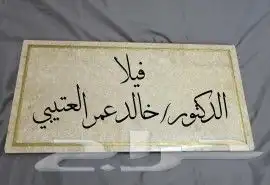 فيلا
الدكتور/خالد عمر العتيبي
حراج